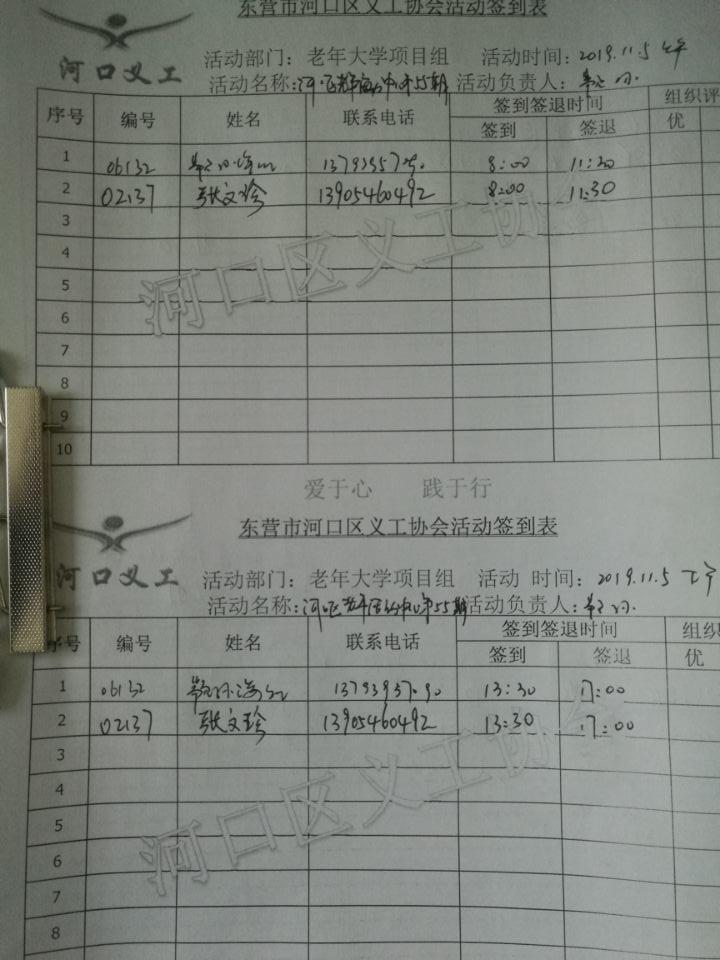 东营市河口区义工协会活动签到表
河口义工
活动部门：老年大学项目组 活动时间：2019.11.5
活动名称： 第55期 活动负责人：
序号 编号 姓名 联系电话 签到签退时间 组织评
签到 签退 优
1 06132 8:00 11:30
2 02137 张文珍 13905460492 8:00 11:30
3
4
5
6
7
8
9
10
河口区义工协会
爱于心 践于行
东营市河口区义工协会活动签到表
河口义工
活动部门：老年大学项目组 活动 时间：2019.11.5 下午
活动名称： 第55期 活动负责人：
序号 编号 姓名 联系电话 签到签退时间 组织
签到 签退 优
1 06132 13:30 17:00
2 02137 张文珍 13905460492 13:30 17:00
3
4
5
6
7
8
河口区义工协会